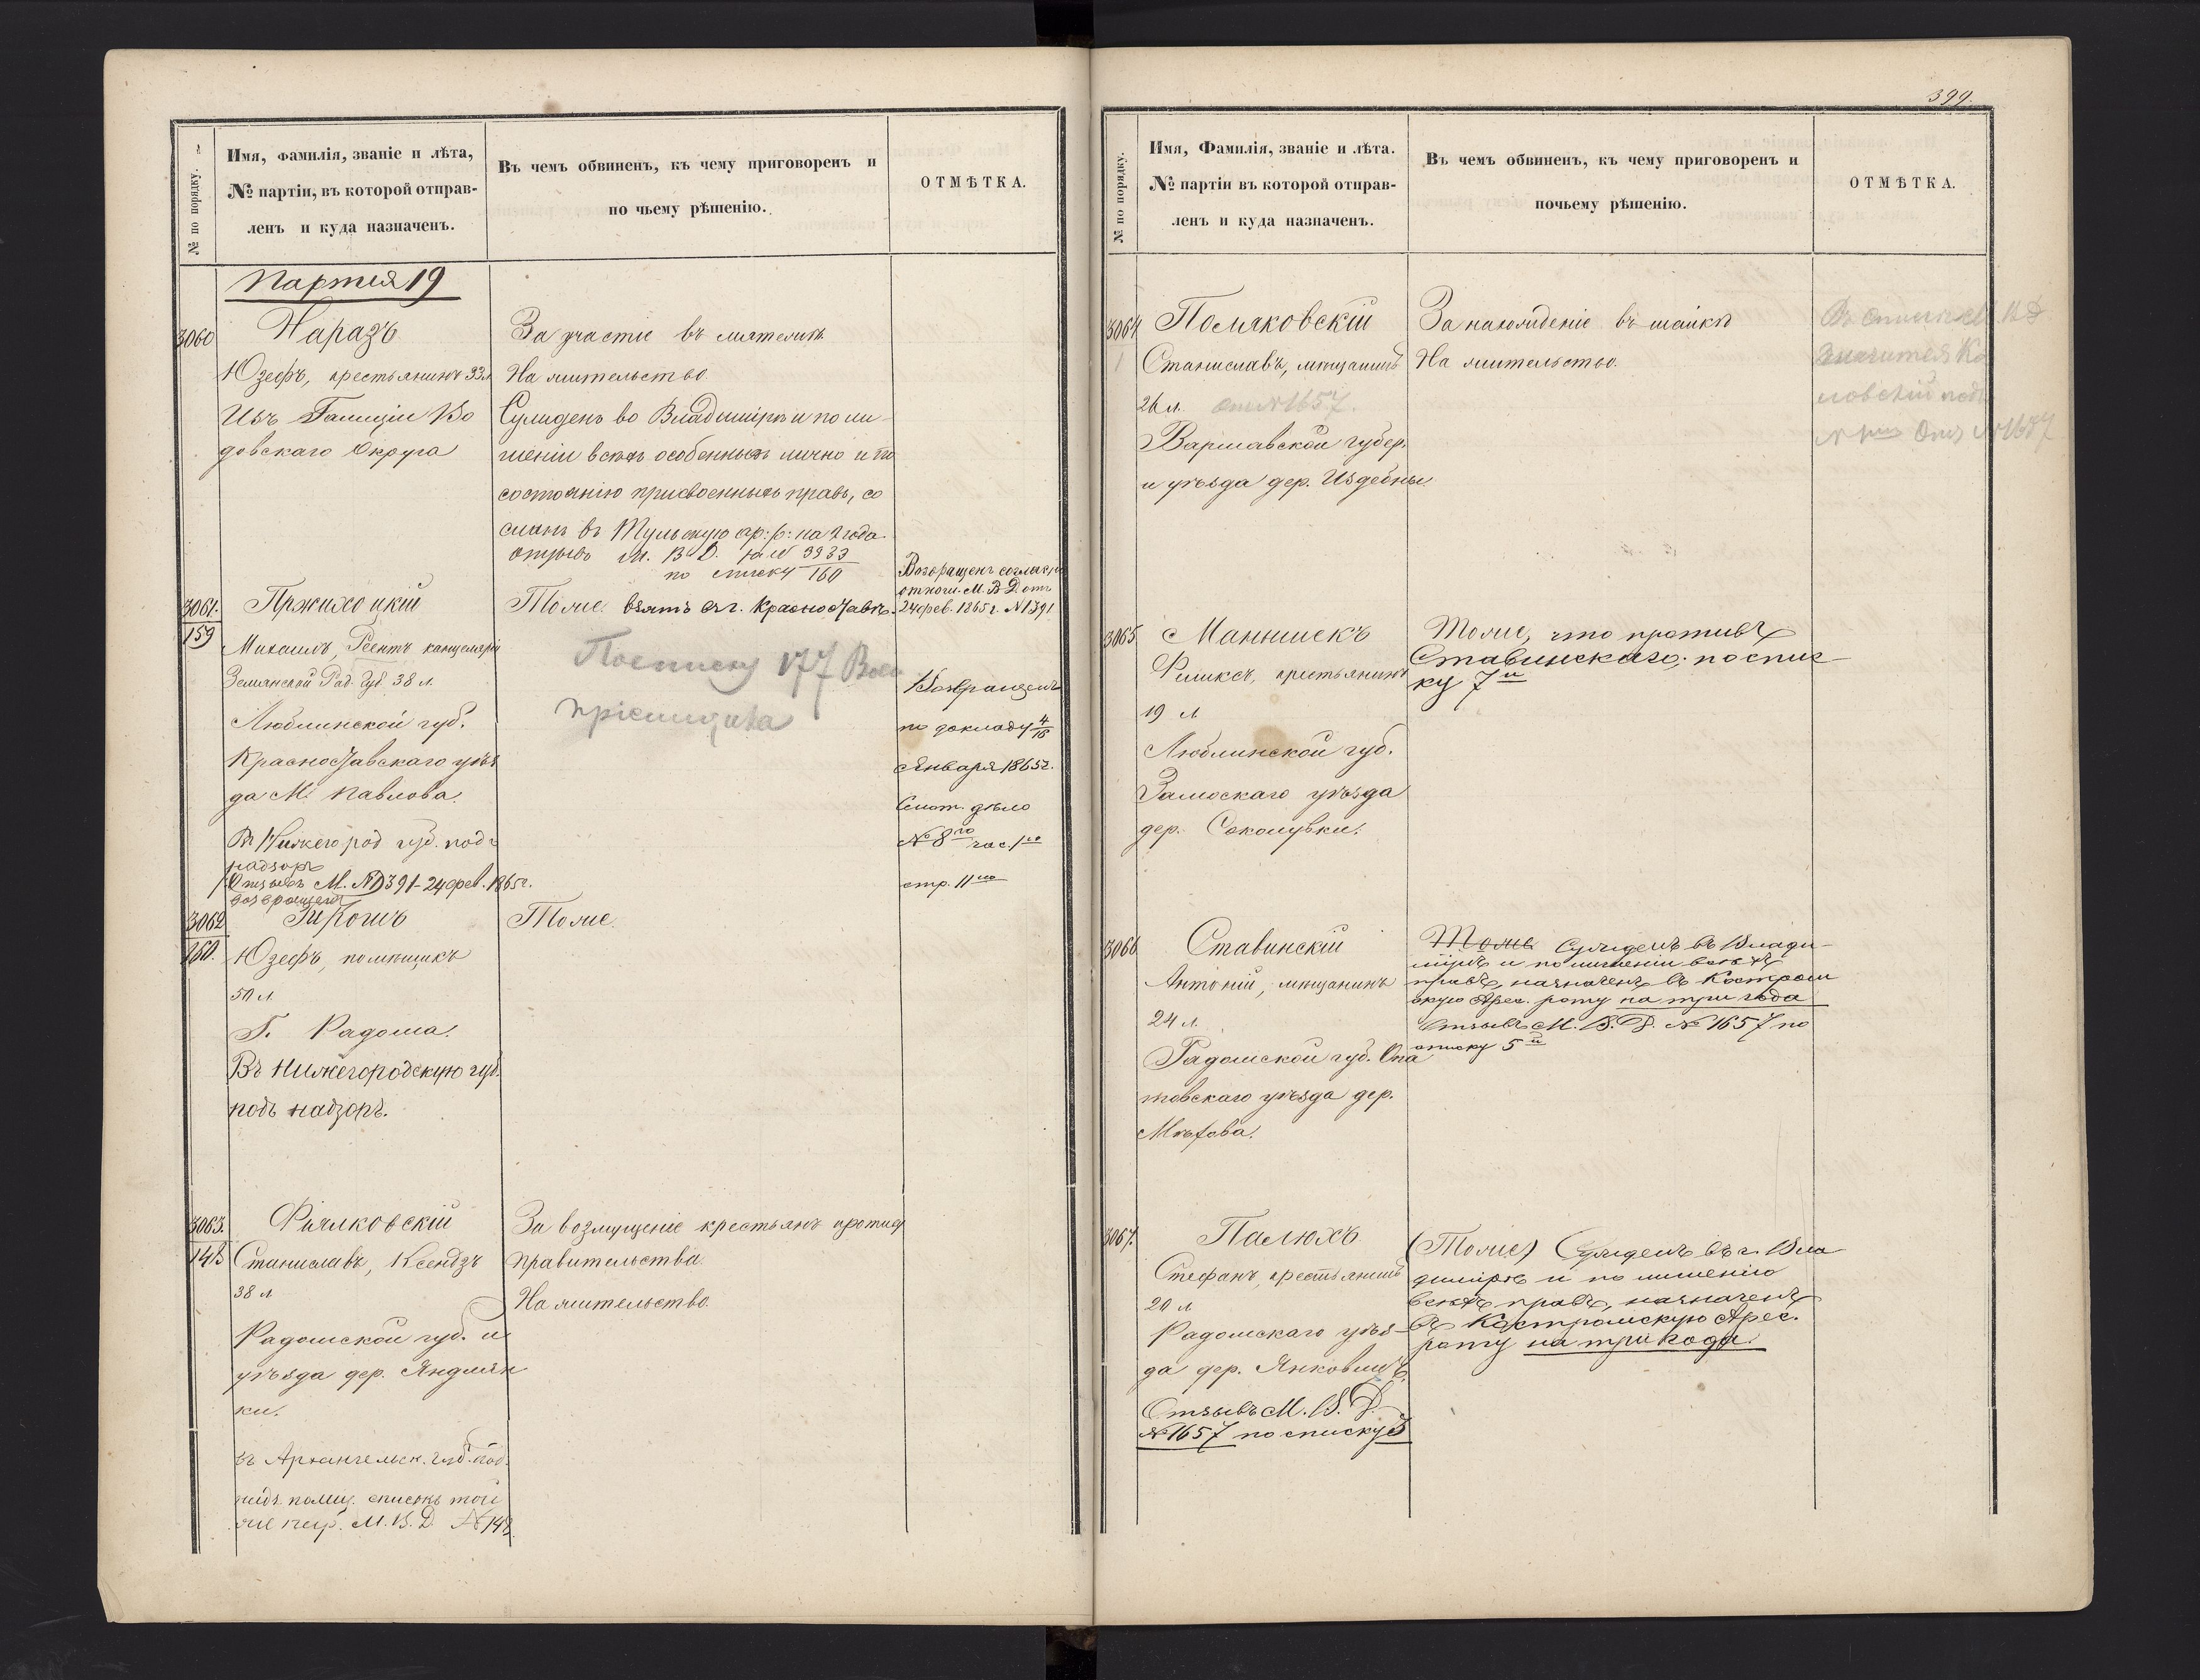 № по порядку.
Имя, фамилія, званіе и лѣта,
№ партіи, въ которой отправ-
ленъ и куда назначенъ.
Въ чемъ обвиненъ, къ чему приговоренъ и
по чьему рѣшенію.
ОТМѢТКА.
Партія 19
3060
Наразъ
Юзефъ, крестьянинъ 33 л
Изъ Галиціи Во
довскаго Округа
За участіе въ мятежѣ.
На жительство.
Сужденъ во Владимірѣ и по ли-
шеніи всѣхъ особенныхъ лично и по
состоянію присвоенныхъ правъ, со
сланъ въ Тульскую ар: р: на 2 года
отзывъ М. В. Д. за № 3933
по списку 160
3061.
159
Пржихоцкій
Михаилъ, Реентъ канцеляріи
Землянской Рад. Губ. 38 л.
Люблинской губ.
Красноставскаго уѣз
да М. Павлова.
Въ Нижегород губ. подъ
надзоръ
Отзывъ М. №1391 - 24 фев. 1865 г.
возвращенъ
Тоже. взятъ въ г. Красноставѣ.
По списку 177
Возвращенъ согласно
отнош. М. В. Д. отъ
24 фев. 1865 г. №1391
Возвращенъ
по докладу 4/16
Января 1865 г.
Смот. дѣло
№ 8го час. 1ю
стр. 11ю
3062
160.
Юзефъ, помѣщикъ
50 л.
Г. Радома.
Въ Нижегородскую губ.
подъ надзоръ.
Тоже.
3063.
148
Фіялковскій
Станиславъ, Ксендзъ
38 л
Радомской губ. и
уѣзда дер. Яндлян
ки.
въ Архангельск. губ. под.
надз. полиц. списокъ той
же М. В. Д. №148.
За возмущеніе крестьянъ против
правительства.
На жительство.
399.
№ по порядку.
Имя, Фамилія, званіе и лѣта.
№ партіи въ которой отправ-
ленъ и куда назначенъ.
Въ чемъ обвиненъ, къ чему приговоренъ и
почьему рѣшенію.
ОТМѢТКА.
3064
1
Поляковскій
Станиславъ, мѣщанинъ
26 л. отн №1657.
Варшавской губер.
и уѣзда дер. Издебны
За нахожденіе въ шайкѣ
На жительство.
Въ спискѣ М В Д
значится Ко
ловскій подъ
3065
Манышекъ
Феликсъ, крестьянинъ
19 л
Люблинской губ.
Замоскаго уѣзда
дер. Соколувки.
Тоже, что противъ
Ставинскаго. по спис-
ку 7й
3066
Ставинскій
Антоній, мѣщанинъ
24 л.
Радомской губ. Опа
товскаго уѣзда дер.
Тоже Сужденъ въ Влади-
мірѣ и по лишеніи всѣхъ
правъ, назначенъ въ Костром
скую Арес. роту на три года
Отзывъ М. В. Д. № 1657 по
списку 5й
3067.
Палюхъ
Стефанъ, крестьянинъ
20 л
Радомскаго уѣз-
да дер. Янковицъ.
Отзывъ М. В. Д.
№ 1657 по списку 3
(Тоже) Сужденъ въ г. Вла
димірѣ и по лишенію
всѣхъ правъ, назначенъ
въ Костромскую Арес.
роту на три года.